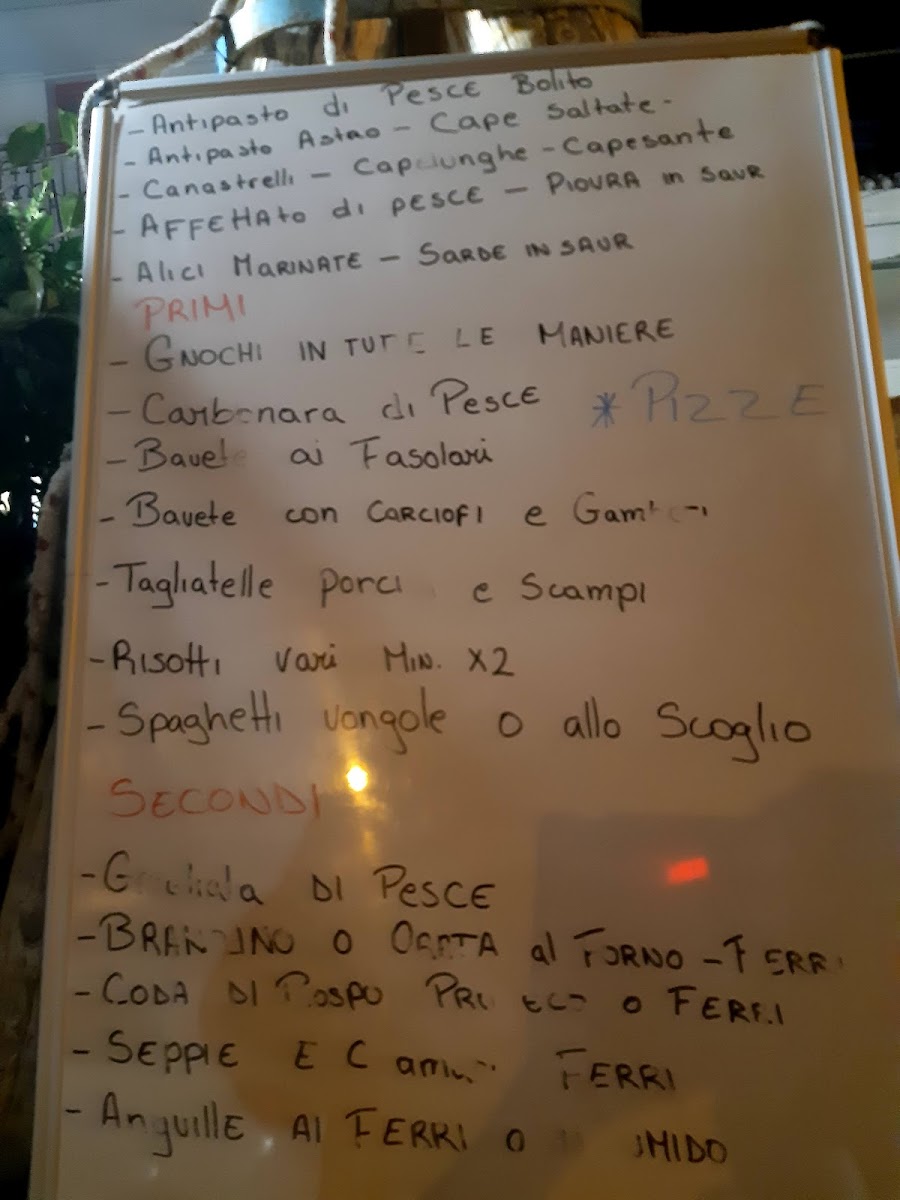 - Antipasto di PESCE Bolito
- Antipasto Astro - Cape Saltate -
- Canastrelli - Capelunghe - Capesante
- AFFETTATO di PESCE - PIOVRA in SAUR
- ALICI MARINATE - SARDE IN SAUR
PRIMI
- GNOCHI IN TUTE LE MANIERE
- Carbonara di PESCE * PIZZE
- Bavete ai Fasolari
- Bavete con CARCIOFI e Gamberi
- Tagliatelle porci e Scampi
- RISOTTI Vari MIN. X2
- Spaghetti vongole o allo Scoglio
SECONDI
- Grigliata DI PESCE
- BRANZINO O ORATA al FORNO - FERRI
- CODA DI ROSPO o FERRI
- SEPPIE E FERRI
- Anguille AI FERRI O UMIDO